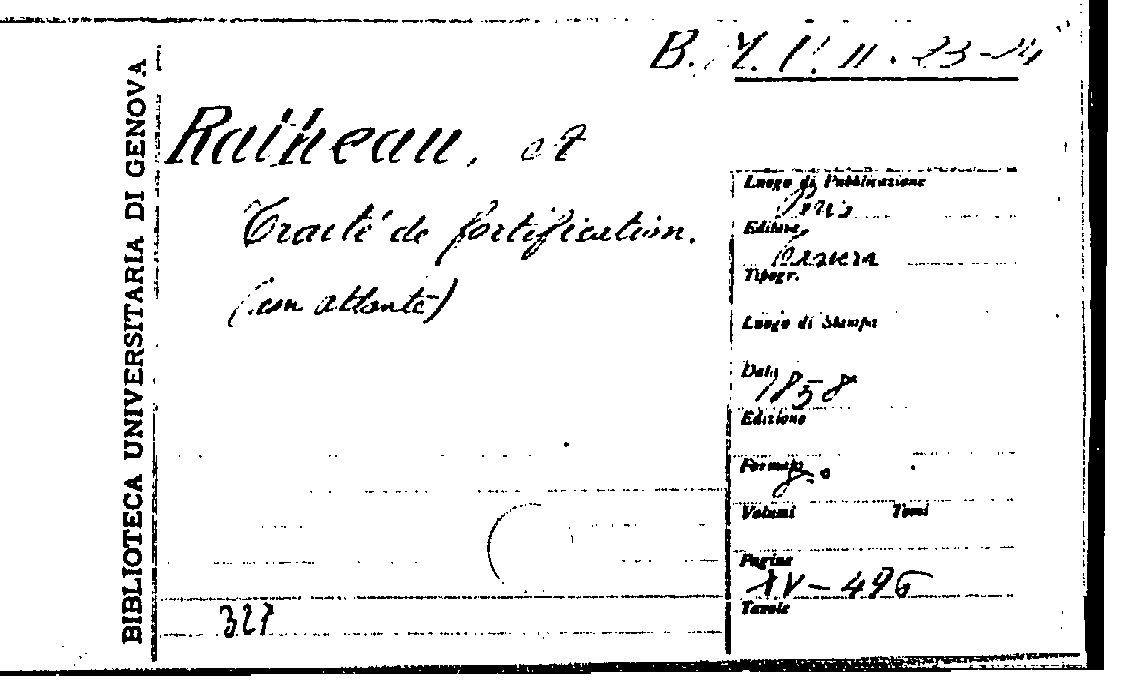 B. M. V. II. 23-24
BIBLIOTECA UNIVERSITARIA DI GENOVA
Ratheau, A
Traité de fortification.
(con atlante)
Luogo di Pubblicazione
Paris
Editore
Tanera
Tipogr.
Luogo di Stampa
Data
1858
Edizione
Formato
8.°
Volumi Tomi
Pagine
XV-496
Tavole
327